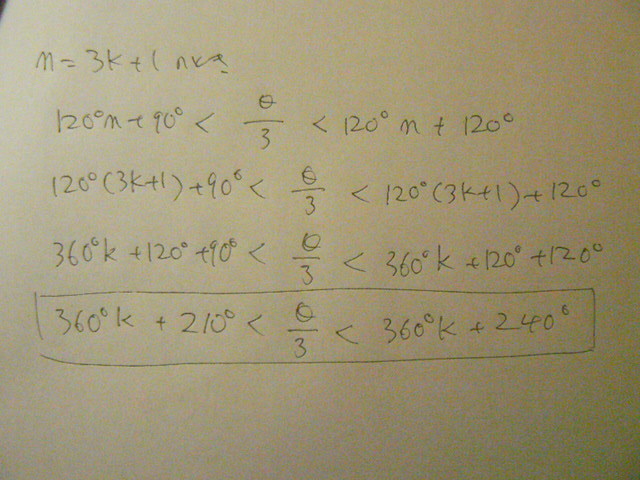 n = 3k + 1
120°n + 90° < θ/3 < 120° n + 120°
120°(3k+1) + 90° < θ/3 < 120°(3k+1) + 120°
360°k + 120° + 90° < θ/3 < 360°k + 120° + 120°
360°k + 210° < θ/3 < 360°k + 240°